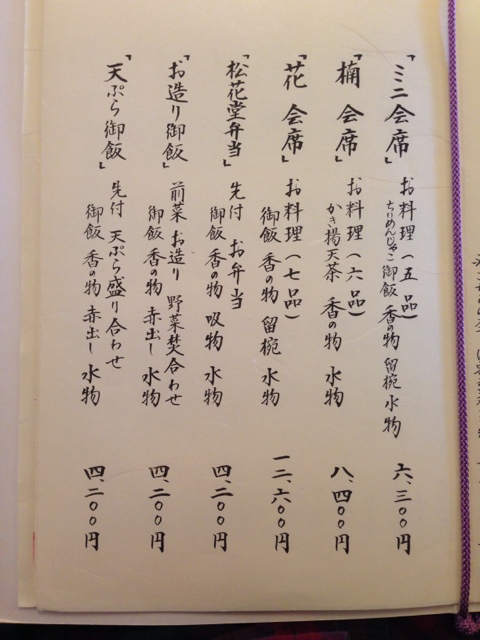 「ミニ会席」
お料理(五品)
ちりめんじゃこ御飯 香の物 留椀 水物
六、三〇〇円
「楠 会席」
お料理(六品)
かき揚天茶 香の物 水物
八、四〇〇円
「花 会席」
お料理(七品)
御飯 香の物 留椀 水物
一二、六〇〇円
「松花堂弁当」
先付 お弁当
御飯 香の物 吸物 水物
四、二〇〇円
「お造り御飯」
前菜 お造り 野菜焚合わせ
御飯 香の物 赤出し 水物
四、二〇〇円
「天ぷら御飯」
先付 天ぷら盛り合わせ
御飯 香の物 赤出し 水物
四、二〇〇円